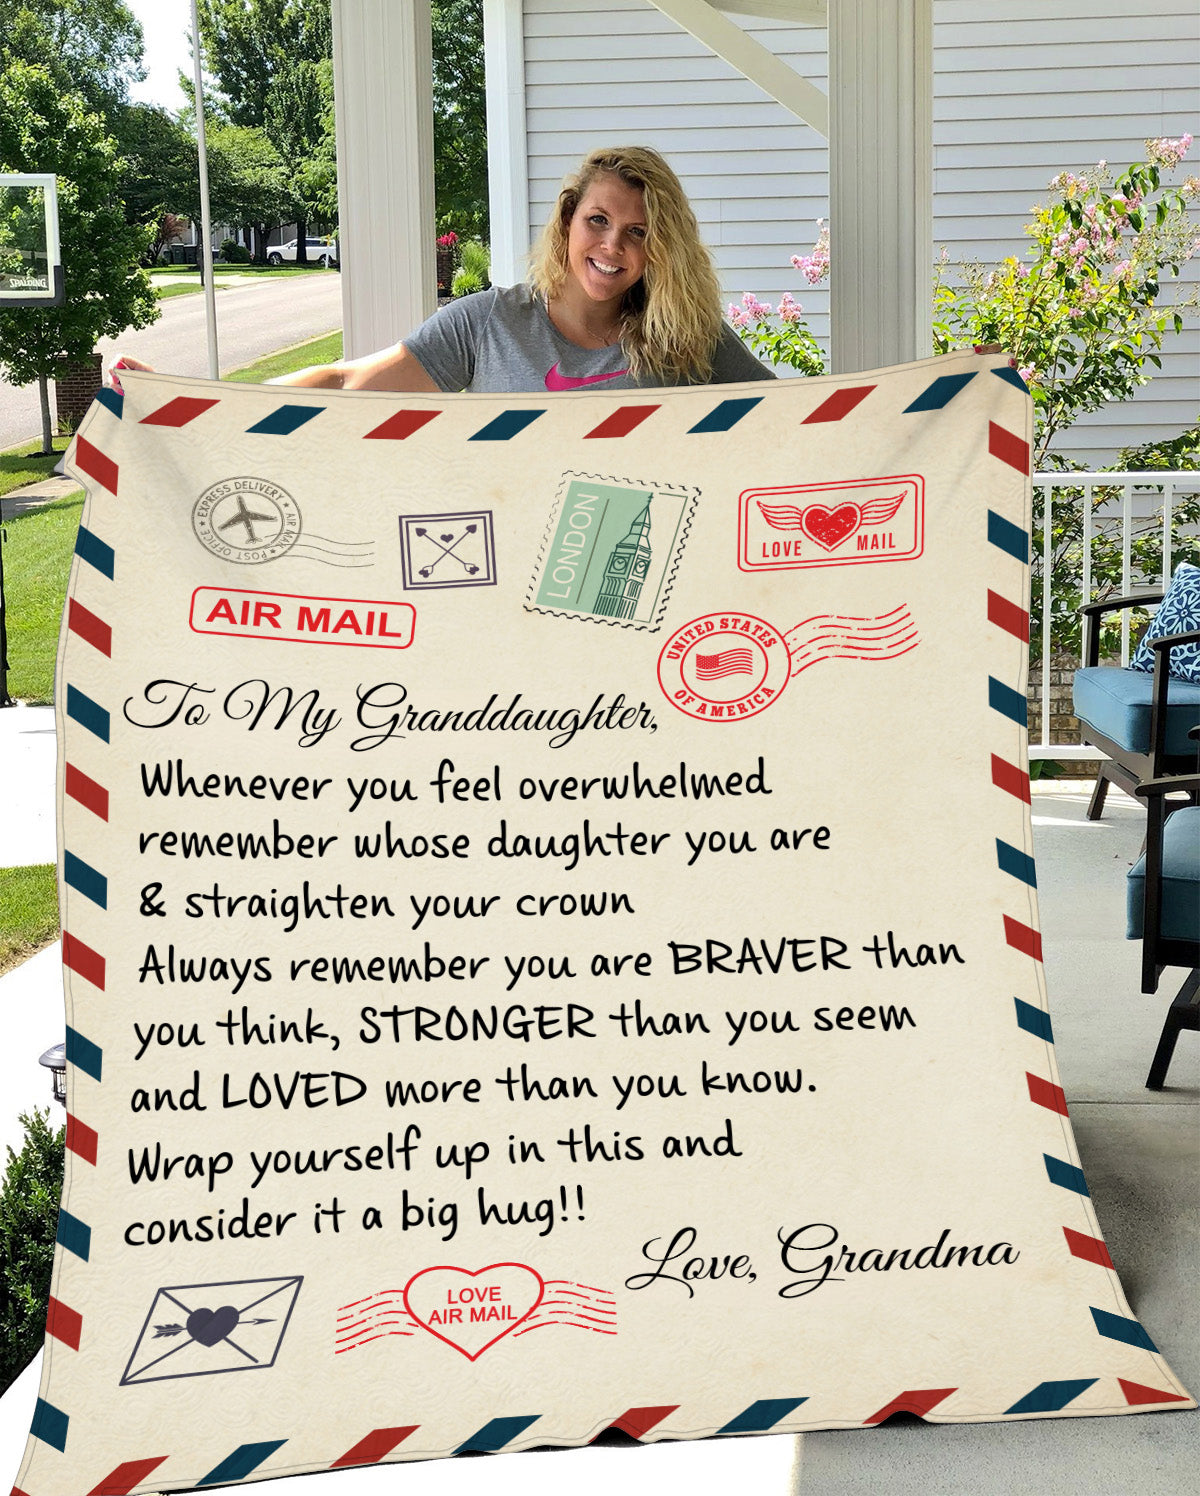 SPALDING
EXPRESS DELIVERY ★ AIR MAIL ★ POST OFFICE ★
LONDON
LOVE MAIL
AIR MAIL
UNITED STATES
OF AMERICA
To My Granddaughter,
Whenever you feel overwhelmed
remember whose daughter you are
& straighten your crown
Always remember you are BRAVER than
you think, STRONGER than you seem
and LOVED more than you know.
Wrap yourself up in this and
consider it a big hug!!
Love, Grandma
LOVE
AIR MAIL